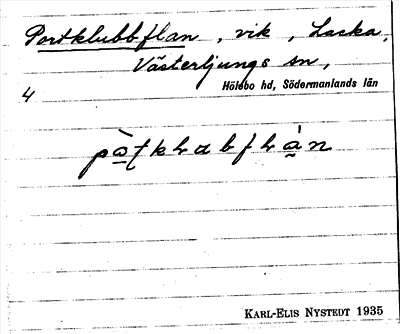 Portklubbflan, vik, Lacka,
Västerljungs sn,
Hölebo hd, Södermanlands län
4
KARL-ELIS NYSTEDT 1935